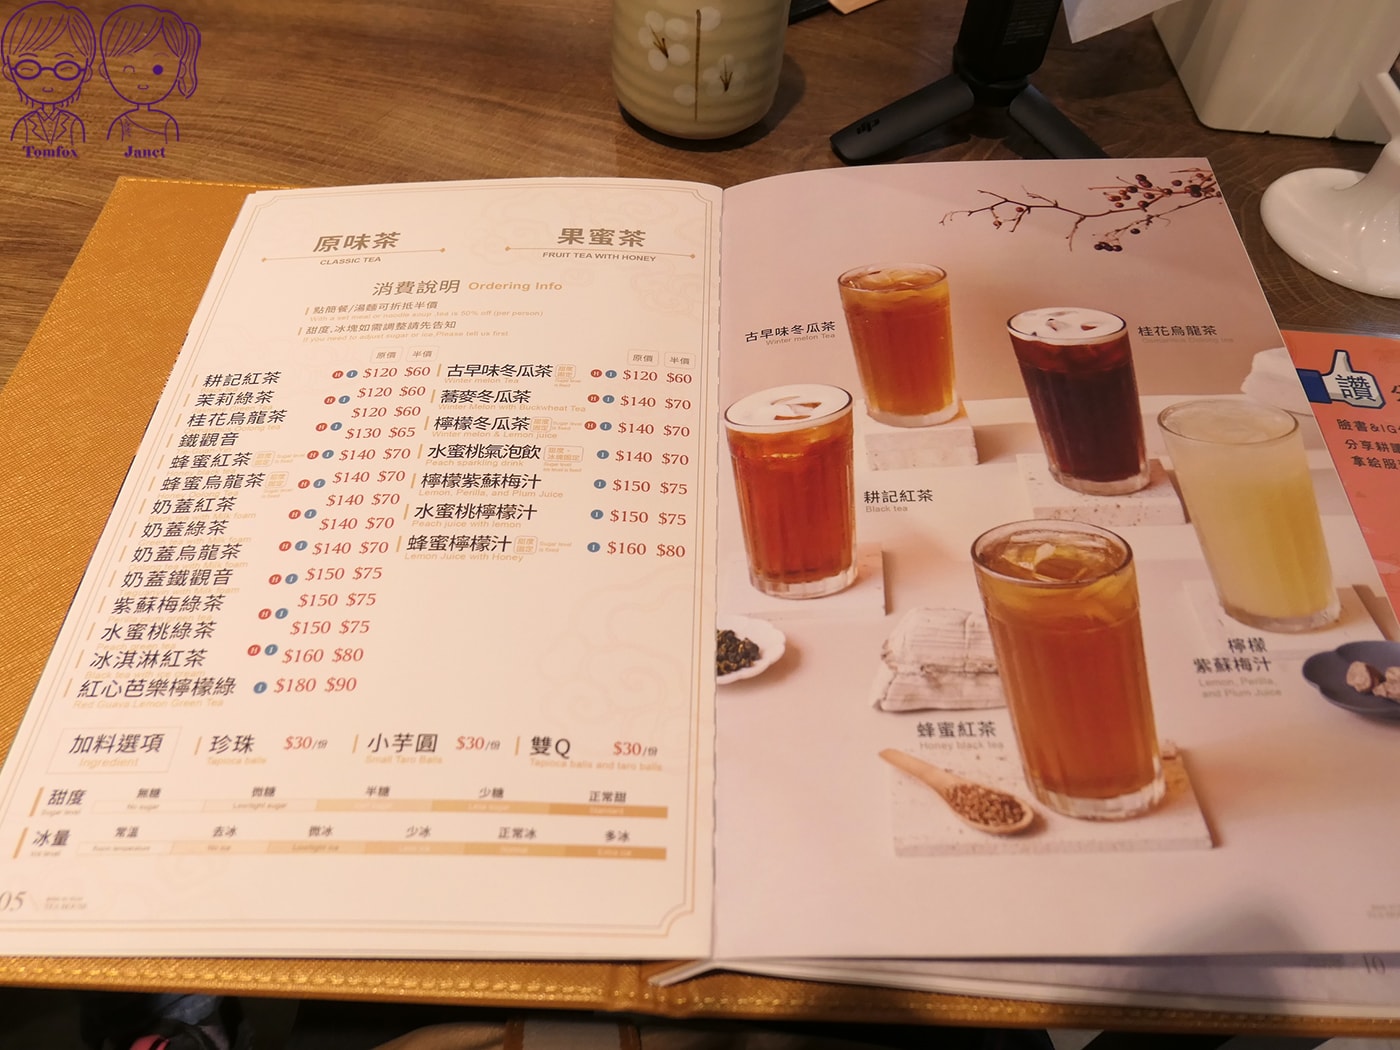 Tomfox
Janet
原味茶
CLASSIC TEA
果蜜茶
FRUIT TEA WITH HONEY
消費說明 Ordering Info
點簡餐/湯麵可折抵半價
With a set meal or noodle soup ,tea is 50% off (per person)
甜度、冰塊如需調整請先告知
If you need to adjust sugar or ice,Please tell us first
原價 半價
耕記紅茶 H I $120 $60
茉莉綠茶 $120 $60
桂花烏龍茶 H I $120 $60
鐵觀音 H I $130 $65
蜂蜜紅茶 甜度固定 H I $140 $70
蜂蜜烏龍茶 甜度固定 H I $140 $70
奶蓋紅茶 $140 $70
奶蓋綠茶 H I $140 $70
奶蓋烏龍茶 H I $140 $70
奶蓋鐵觀音 H I $150 $75
紫蘇梅綠茶 $150 $75
水蜜桃綠茶 H I $150 $75
冰淇淋紅茶 H I $160 $80
紅心芭樂檸檬綠 I $180 $90
Red Guava Lemon Green Tea
原價 半價
古早味冬瓜茶 甜度固定 H I $120 $60
Winter melon Tea
蕎麥冬瓜茶 H I $140 $70
Winter Melon with Buckwheat Tea
檸檬冬瓜茶 甜度固定 H I $140 $70
Winter melon & Lemon juice
水蜜桃氣泡飲 甜度、冰塊固定 I $140 $70
Peach sparkling drink
檸檬紫蘇梅汁 I $150 $75
Lemon, Perilla, and Plum Juice
水蜜桃檸檬汁 I $150 $75
Peach juice with lemon
蜂蜜檸檬汁 甜度固定 Sugar level is fixed I $160 $80
Lemon Juice with Honey
加料選項
Ingredient
珍珠 $30/份
Tapioca balls
小芋圓 $30/份
Small Taro Balls
雙Q $30/份
Tapioca balls and taro balls
甜度 無糖 微糖 半糖 少糖 正常甜
Sugar level No sugar
冰量 常溫 去冰 微冰 少冰 正常冰 多冰
Room temperature No ice
05
古早味冬瓜茶
Winter melon Tea
桂花烏龍茶
耕記紅茶
Black tea
檸檬
紫蘇梅汁
Lemon, Perilla,
and Plum Juice
蜂蜜紅茶
Honey black tea
讚
臉書&IG
分享耕
10
dji